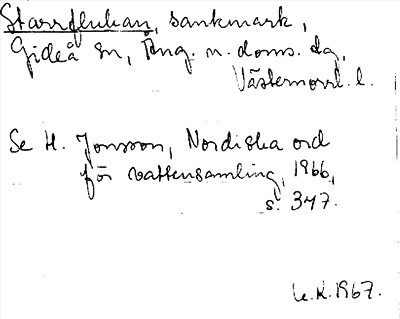 Starrflukan, sankmark,
Gideå sn, Ång. n. doms. dag,
Västernorrl. l.
Se H. Jonsson, Nordiska ord
för vattensamling, 1966,
s. 347.
U.K. 1967.